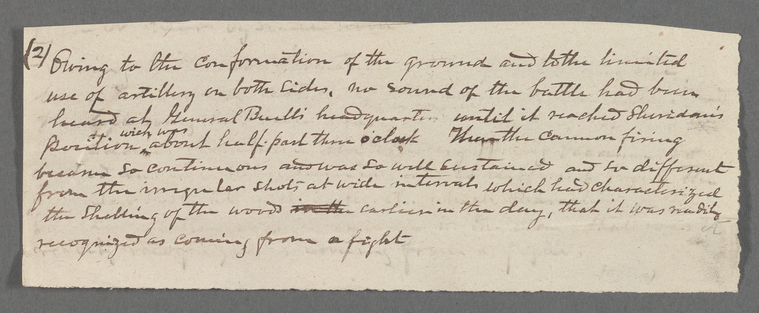 (2) Owing to the conformation of the ground and to the limited
use of artillery on both sides, no sound of the battle had been
heard at General Buell's headquarters until it reached Sheridan's
which was
position, about half-past three o'clock Then the cannon firing
became so continuous and was so well sustained and so different
from the irregular shots at wide intervals which had characterized
the shelling of the woods in the earlier in the day, that it was readily
recognized as coming from a fight